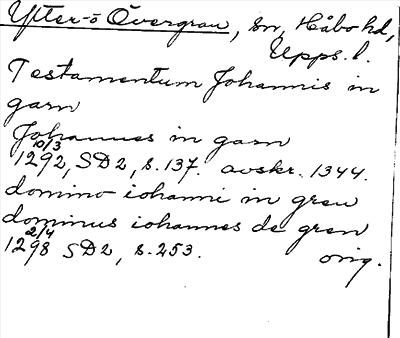 Ytter-ö Övergran, sn, Håbo hd,
Upps. l.
Testamentum Johannis in
garn
Johannes in garn
10/3
1292, SD2, s. 137. avskr. 1344.
domino iohanni in gren
dominus iohannes de gren
2/4
1298 SD2, s. 253. orig.